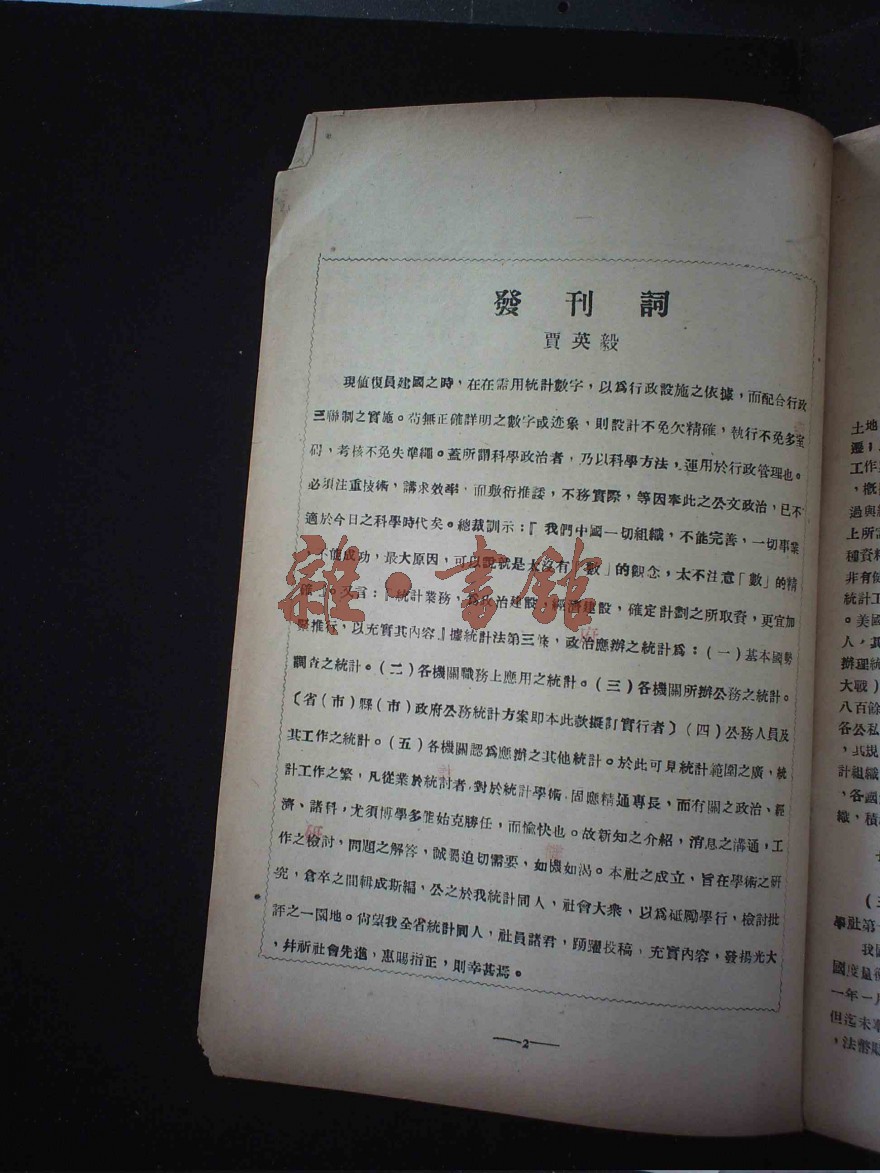 發刊詞
賈英毅
現值復員建國之時，在在需用統計數字，以爲行政設施之依據，而配合行政
三聯制之實施。苟無正確詳明之數字或迹象，則設計不免欠精確，執行不免多窒
碍，考核不免失準繩。蓋所謂科學政治者，乃以科學方法，運用於行政管理也。
必須注重技術，講求效率，而敷衍推諉，不務實際，等因奉此之公文政治，已不
適於今日之科學時代矣。總裁訓示：『我們中國一切組織，不能完善，一切事業
不能成功，最大原因，可以說就是太沒有「數」的觀念，太不注意「數」的精
。又言：『統計業務，爲政治建設，經濟建設，確定計劃之所取資，更宜加
緊推行，以充實其內容。』據統計法第三條，政治應辦之統計爲：(一)基本國勢
調查之統計。(二)各機關職務上應用之統計。(三)各機關所辦公務之統計。
〔省(市)縣(市)政府公務統計方案即本此款擬訂實行者〕(四)公務人員及
其工作之統計。(五)各機關認爲應辦之其他統計。於此可見統計範圍之廣，統
計工作之繁，凡從業於統計者，對於統計學術，固應精通專長，而有關之政治、經
濟、諸科，尤須博學多能始克勝任，而愉快也。故新知之介紹，消息之溝通，工
作之檢討，問題之解答，誠屬迫切需要，如饑如渴。本社之成立，旨在學術之研
究，倉卒之間輯成斯編，公之於我統計同人，社會大衆，以爲砥勵學行，檢討批
評之一園地。尚望我全省統計同人，社員諸君，踴躍投稿，充實內容，發揚光大
，幷祈社會先進，惠賜指正，則幸甚焉。
—2—
雜·書館
土地
遷；
工作
，概
過與
上所
種資料
非有
統計工
。美國
人，其
辦理統
大戰)
八百餘
各公私
，其規
計組織
，各國
織，積
(三
學社第
我國
國度量衡
一年一月
但迄未
，法幣